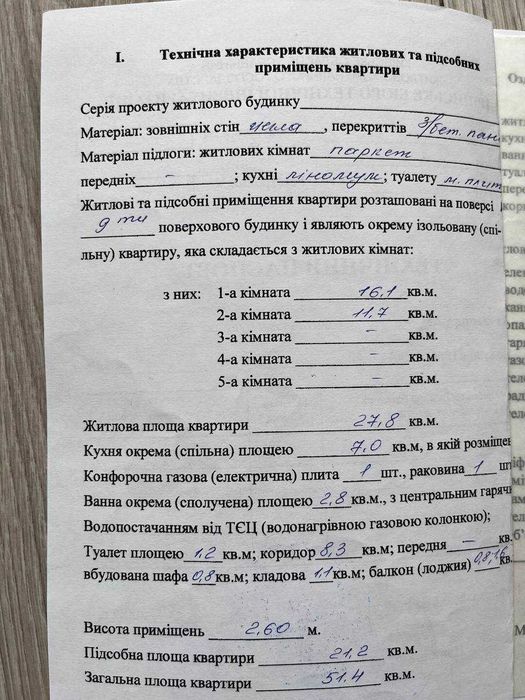 I. Технічна характеристика житлових та підсобних
приміщень квартири
Серія проекту житлового будинку
Матеріал: зовнішніх стін цегла, перекриттів З/бет. пан
Матеріал підлоги: житлових кімнат паркет
передніх - ; кухні лінолиум; туалету м. плит
Житлові та підсобні приміщення квартири розташовані на поверсі
9 ти поверхового будинку і являють окрему ізольовану (спі-
льну) квартиру, яка складається з житлових кімнат:
з них: 1-а кімната 16,1 кв.м.
2-а кімната 11,7 кв.м.
3-а кімната - кв.м.
4-а кімната - кв.м.
5-а кімната - кв.м.
Житлова площа квартири 27,8 кв.м.
Кухня окрема (спільна) площею 7,0 кв.м, в якій розміщен
Конфорочна газова (електрична) плита 1 шт., раковина 1 шт
Ванна окрема (сполучена) площею 2,8 кв.м., з центральним гарячи
Водопостачанням від ТЄЦ (водонагрівною газовою колонкою);
Туалет площею 1,2 кв.м; коридор 8,3 кв.м; передня — кв.
вбудована шафа 0,8 кв.м; кладова 1,1 кв.м; балкон (лоджия) 0,8, 1,6 кв.
Висота приміщень 2,60 м.
Підсобна площа квартири 21,2 кв.м.
Загальна площа квартири 51,4 кв.м.